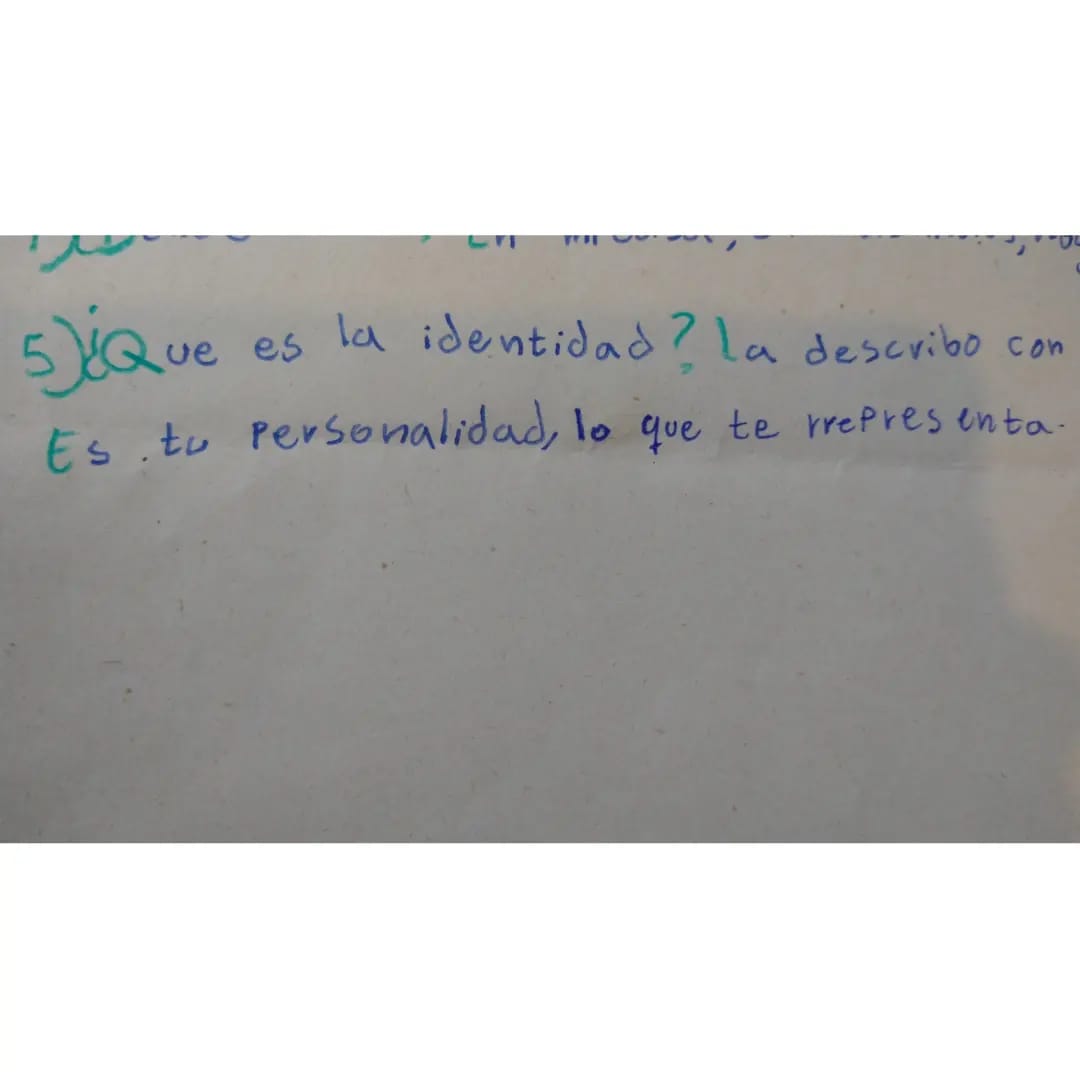 5) ¿Que es la identidad? La describo con
Es tu personalidad, lo que te rrepresenta.